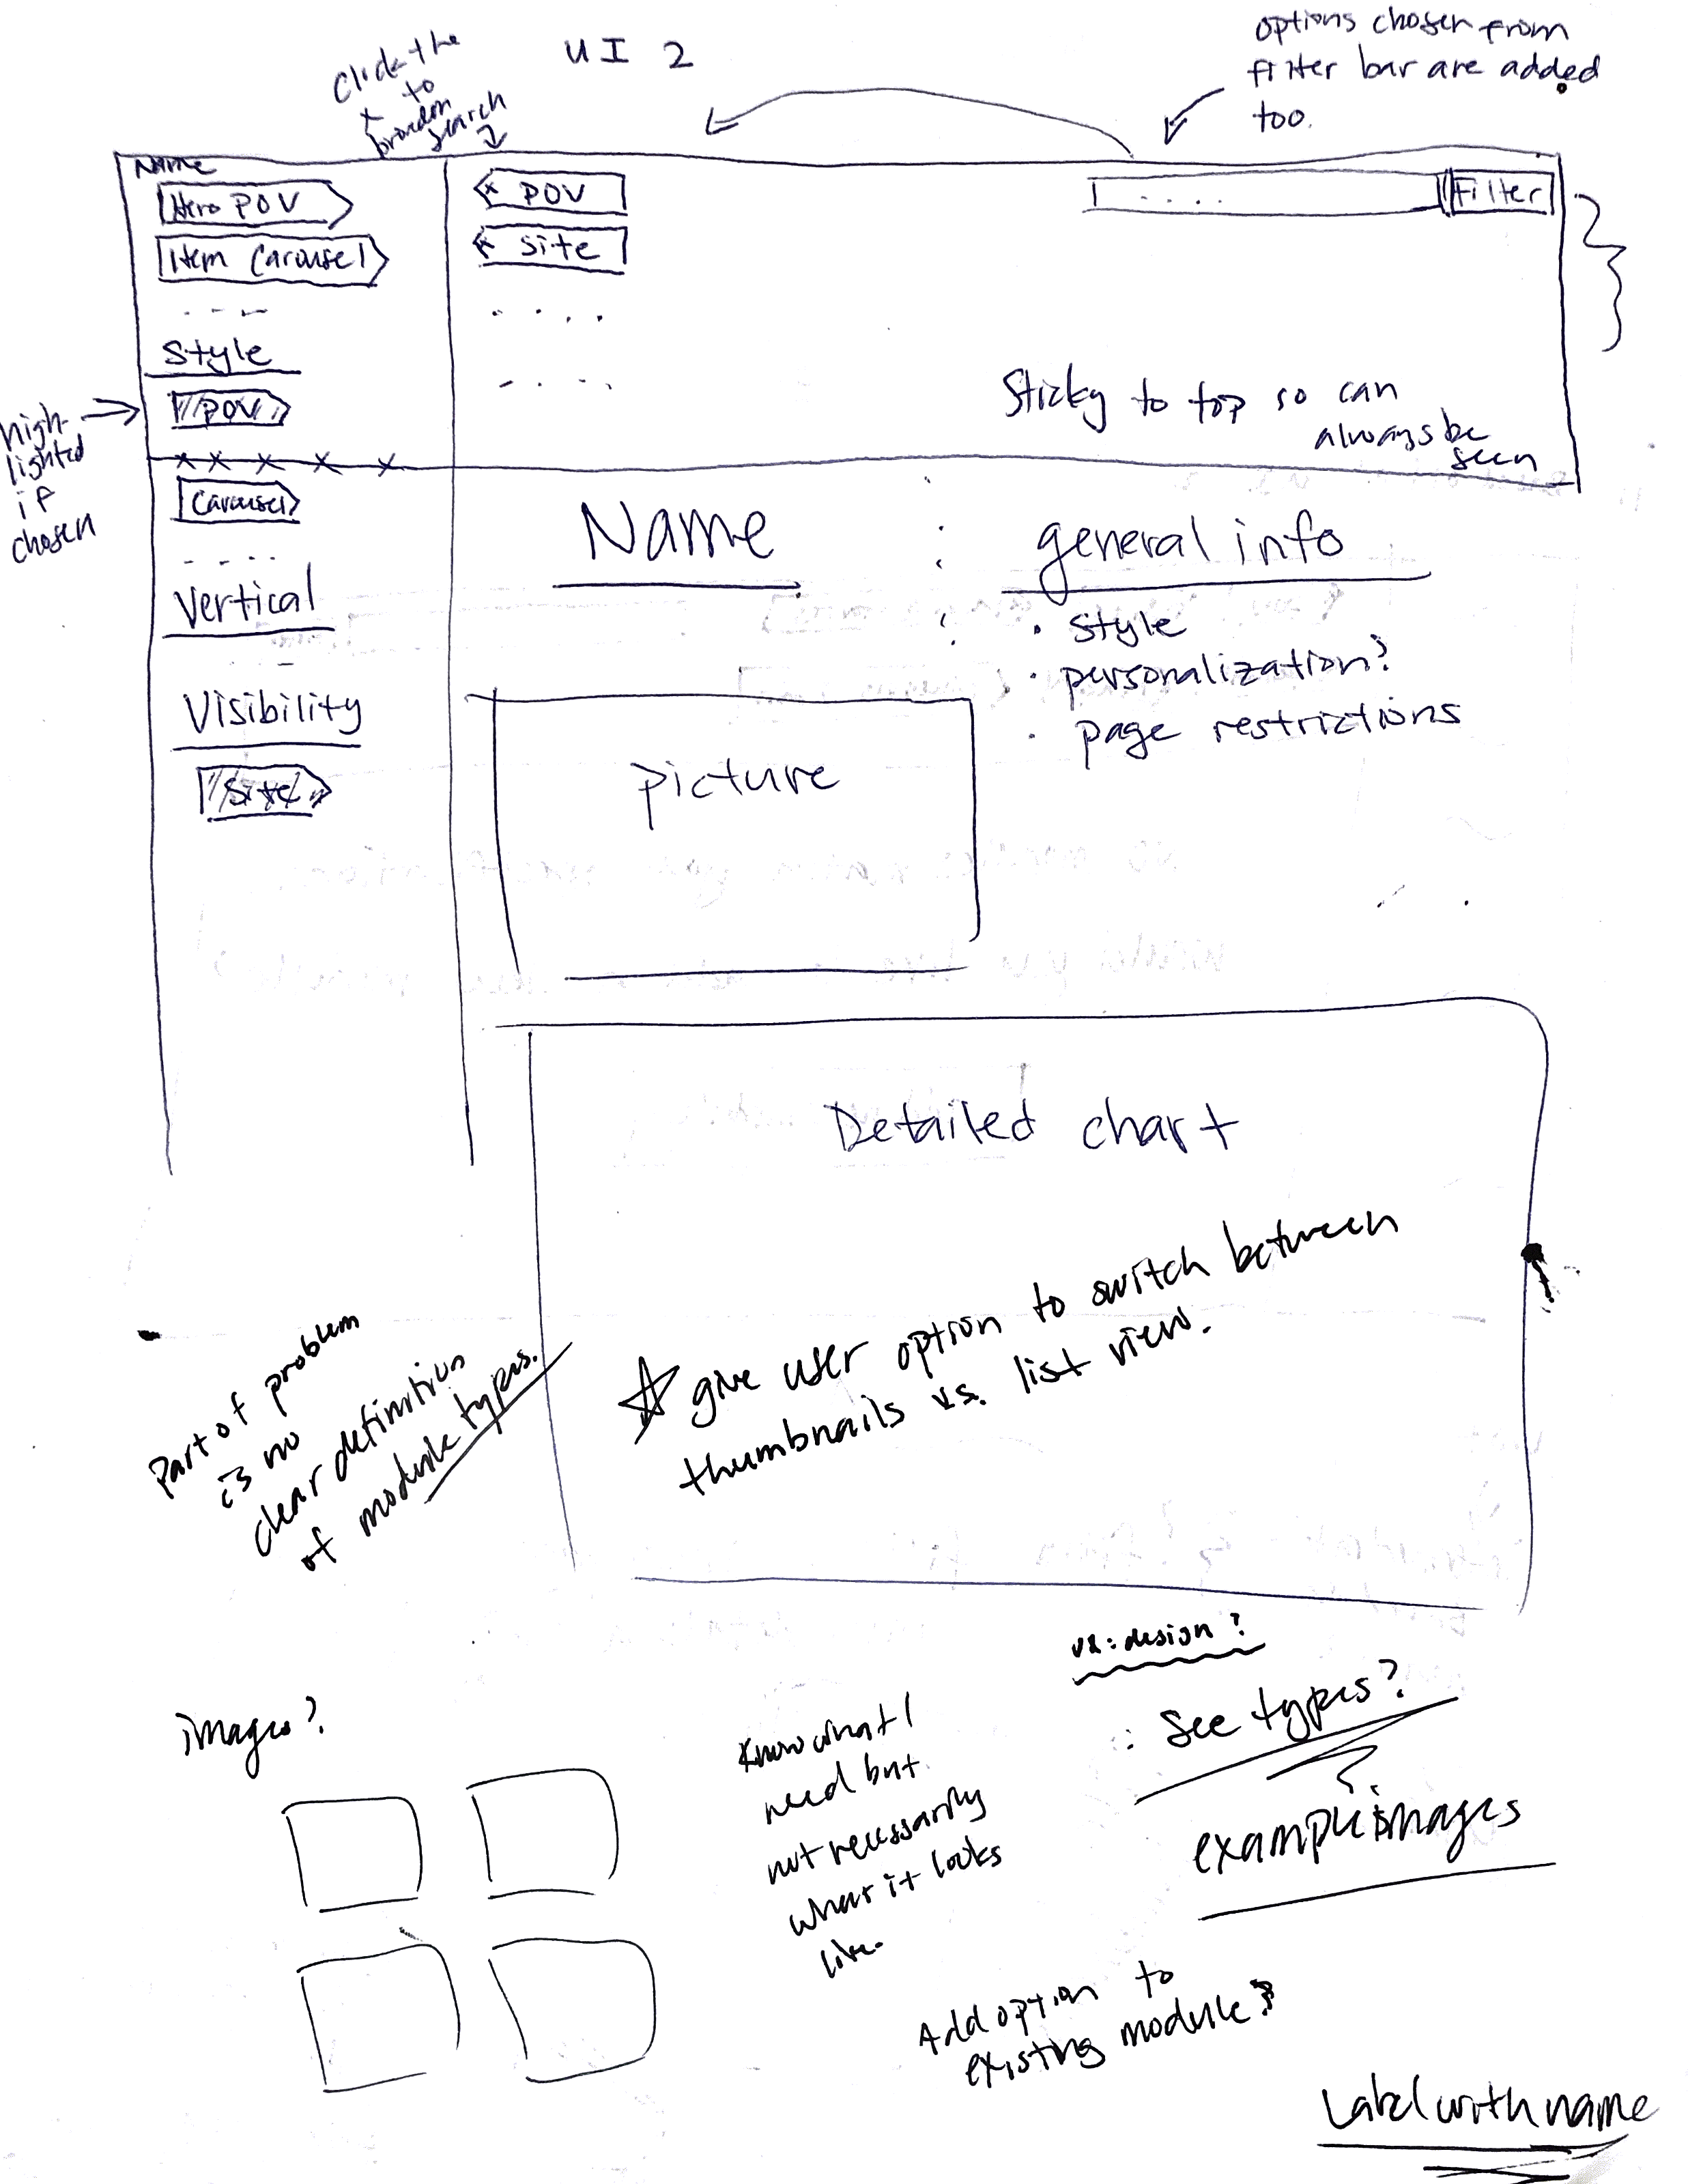 UI 2
Click the
x to
broaden
search
options chosen from
filter bar are added
too.
Name
Hero POV
Item Carousel
Style
POV
x x x x x
Carousel
Vertical
Visibility
Site
high-
lighted
if
chosen
x POV
x Site
Filter
Sticky to top so can
always be
seen
Name
general info
· style
· personalization?
· page restrictions
picture
Detailed chart
☆ give user option to switch between
thumbnails vs. list view.
part of problem
is no
clear definition
of module types.
images?
know what I
need but
not necessarily
what it looks
like.
design?
: See types?
example images
Add option to
existing module?
Label with name